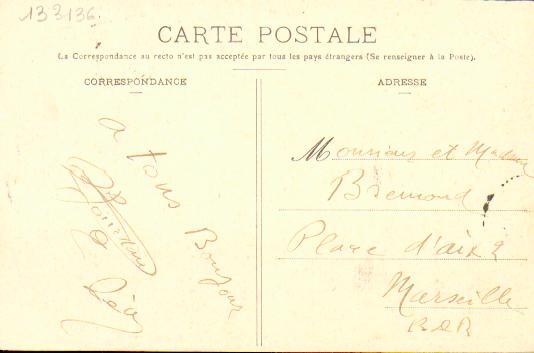 133136.
CARTE POSTALE
La Correspondance au recto n'est pas acceptée par tous les pays étrangers (Se renseigner à la Poste).
CORRESPONDANCE
a tous Bonjour
ADRESSE
Monsieur et Madame
Bremond
Place d'aix 2
Marseille
BDR